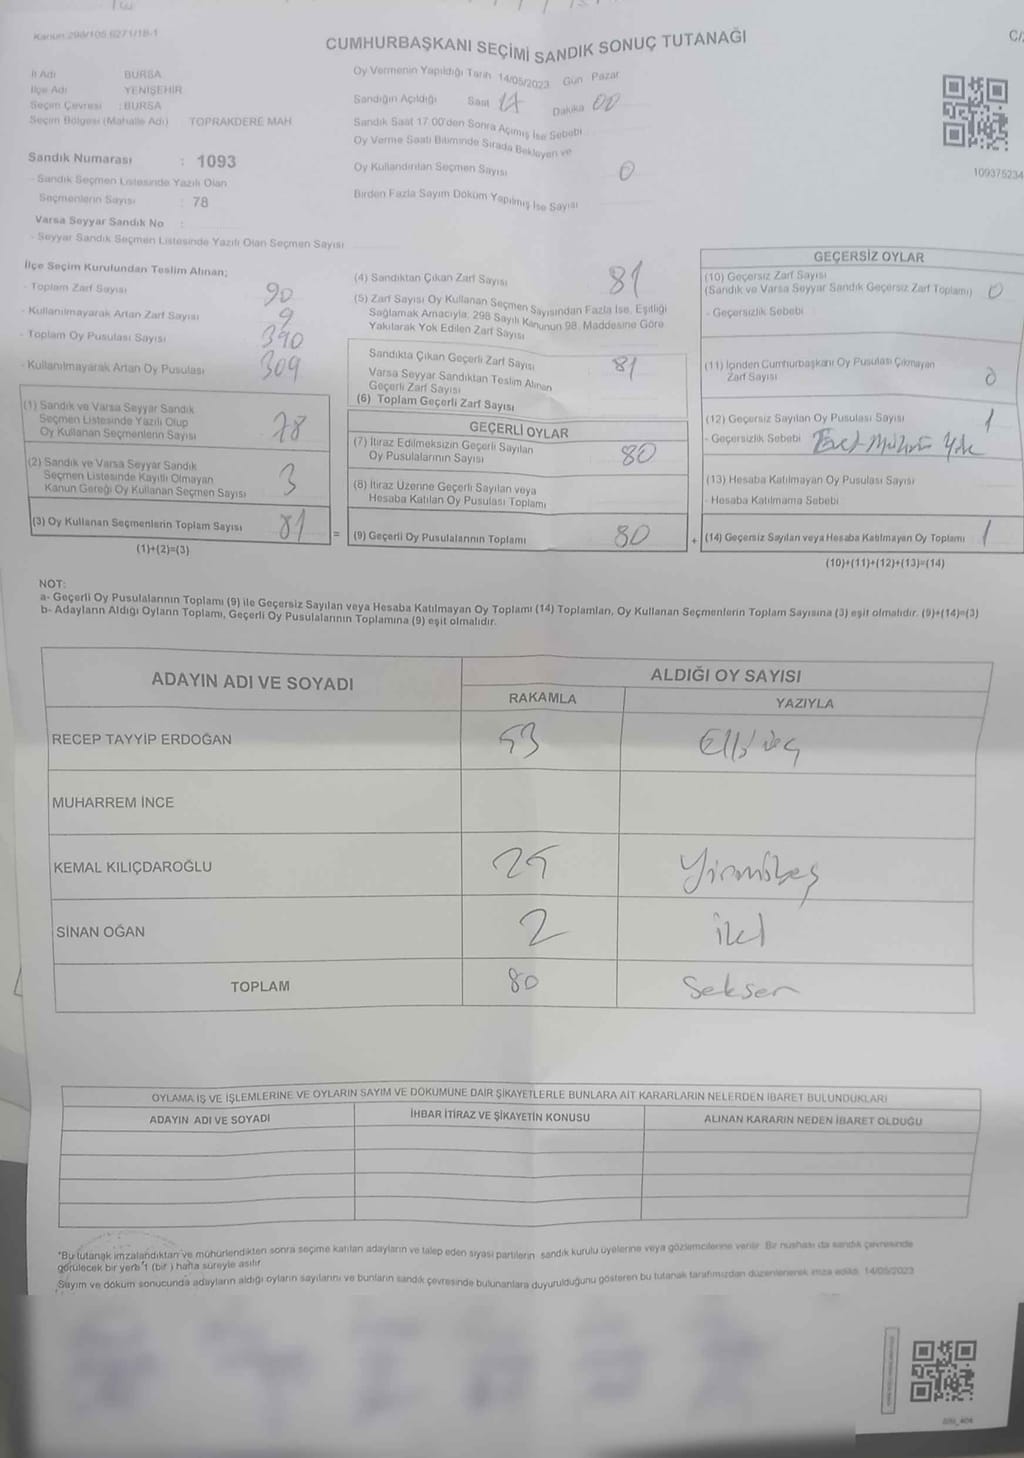 Kanun:298/105 6271/18-1
CUMHURBAŞKANI SEÇİMİ SANDIK SONUÇ TUTANAĞI
İl Adı BURSA
İlçe Adı YENİŞEHİR
Seçim Çevresi : BURSA
Seçim Bölgesi (Mahalle Adı) TOPRAKDERE MAH.
Sandık Numarası : 1093
- Sandık Seçmen Listesinde Yazılı Olan
Seçmenlerin Sayısı : 78
Varsa Seyyar Sandık No :
- Seyyar Sandık Seçmen Listesinde Yazılı Olan Seçmen Sayısı
Oy Vermenin Yapıldığı Tarih 14/05/2023 Gün Pazar
Sandığın Açıldığı Saat 17 Dakika 00
Sandık Saat 17.00'den Sonra Açılmış İse Sebebi
Oy Verme Saati Bitiminde Sırada Bekleyen ve
Oy Kullandırılan Seçmen Sayısı 0
Birden Fazla Sayım Döküm Yapılmış İse Sayısı
109375234
İlçe Seçim Kurulundan Teslim Alınan;
- Toplam Zarf Sayısı 90
- Kullanılmayarak Artan Zarf Sayısı 9
- Toplam Oy Pusulası Sayısı 390
- Kullanılmayarak Artan Oy Pusulası 309
(1) Sandık ve Varsa Seyyar Sandık
Seçmen Listesinde Yazılı Olup
Oy Kullanan Seçmenlerin Sayısı 78
(2) Sandık ve Varsa Seyyar Sandık
Seçmen Listesinde Kayıtlı Olmayan
Kanun Gereği Oy Kullanan Seçmen Sayısı 3
(3) Oy Kullanan Seçmenlerin Toplam Sayısı 81
(1)+(2)=(3)
=
(4) Sandıktan Çıkan Zarf Sayısı 81
(5) Zarf Sayısı Oy Kullanan Seçmen Sayısından Fazla İse, Eşitliği
Sağlamak Amacıyla; 298 Sayılı Kanunun 98. Maddesine Göre
Yakılarak Yok Edilen Zarf Sayısı
Sandıkta Çıkan Geçerli Zarf Sayısı 81
Varsa Seyyar Sandıktan Teslim Alınan
Geçerli Zarf Sayısı
(6) Toplam Geçerli Zarf Sayısı
GEÇERLİ OYLAR
(7) İtiraz Edilmeksizin Geçerli Sayılan
Oy Pusulalarının Sayısı 80
(8) İtiraz Üzerine Geçerli Sayılan veya
Hesaba Katılan Oy Pusulası Toplamı
(9) Geçerli Oy Pusulalarının Toplamı 80
+
GEÇERSİZ OYLAR
(10) Geçersiz Zarf Sayısı
(Sandık ve Varsa Seyyar Sandık Geçersiz Zarf Toplamı) 0
- Geçersizlik Sebebi
(11) İçinden Cumhurbaşkanı Oy Pusulası Çıkmayan
Zarf Sayısı 0
(12) Geçersiz Sayılan Oy Pusulası Sayısı 1
- Geçersizlik Sebebi
(13) Hesaba Katılmayan Oy Pusulası Sayısı
- Hesaba Katılmama Sebebi
(14) Geçersiz Sayılan veya Hesaba Katılmayan Oy Toplamı 1
(10)+(11)+(12)+(13)=(14)
NOT:
a- Geçerli Oy Pusulalarının Toplamı (9) ile Geçersiz Sayılan veya Hesaba Katılmayan Oy Toplamı (14) Toplamları, Oy Kullanan Seçmenlerin Toplam Sayısına (3) eşit olmalıdır. (9)+(14)=(3)
b- Adayların Aldığı Oyların Toplamı, Geçerli Oy Pusulalarının Toplamına (9) eşit olmalıdır.
ADAYIN ADI VE SOYADI ALDIĞI OY SAYISI
RAKAMLA YAZIYLA
RECEP TAYYİP ERDOĞAN 53 Elli üç
MUHARREM İNCE
KEMAL KILIÇDAROĞLU 25 Yirmibeş
SİNAN OĞAN 2 iki
TOPLAM 80 Seksen
OYLAMA İŞ VE İŞLEMLERİNE VE OYLARIN SAYIM VE DÖKÜMÜNE DAİR ŞİKAYETLERLE BUNLARA AİT KARARLARIN NELERDEN İBARET BULUNDUKLARI
ADAYIN ADI VE SOYADI İHBAR İTİRAZ VE ŞİKAYETİN KONUSU ALINAN KARARIN NEDEN İBARET OLDUĞU
*Bu tutanak imzalandıktan ve mühürlendikten sonra seçime katılan adayların ve talep eden siyasi partilerin sandık kurulu üyelerine veya gözlemcilerine verilir. Bir nüshası da sandık çevresinde
görülecek bir yerde 1 (bir) hafta süreyle asılır.
Sayım ve döküm sonucunda adayların aldığı oyların sayılarını ve bunların sandık çevresinde bulunanlara duyurulduğunu gösteren bu tutanak tarafımızdan düzenlenerek imza edildi. 14/05/2023